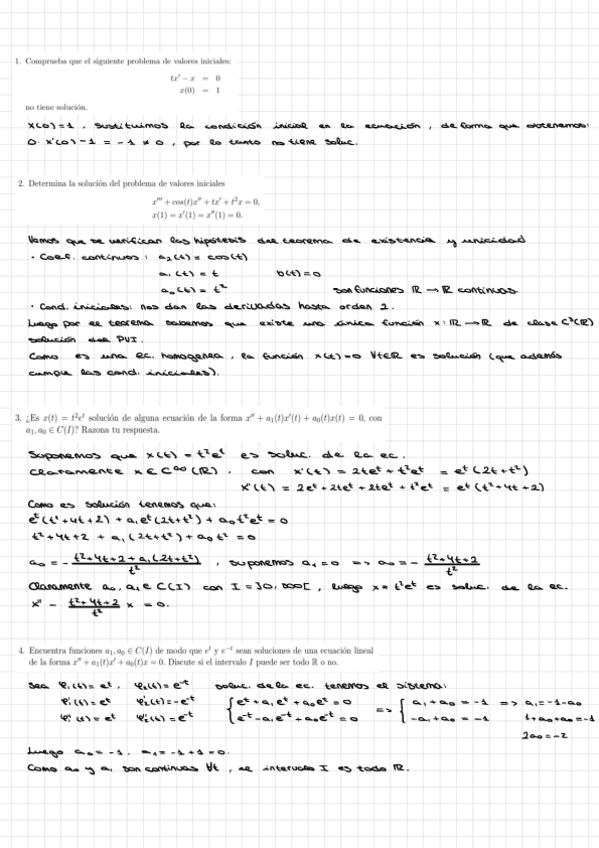 1. Comprueba que el siguiente problema de valores iniciales:
tx' − x = 0
x(0) = 1
no tiene solución.
x(0)=1, sustituimos la condición inicial en la ecuación, de forma que obtenemos:
0·x'(0)-1 = -1 ≠ 0, por lo tanto no tiene soluc.
2. Determina la solución del problema de valores iniciales
x''' + cos(t)x'' + tx' + t²x = 0,
x(1) = x'(1) = x''(1) = 0.
Vamos que se verifican las hipótesis del teorema de existencia y unicidad
· Coef. continuos: a₂(t) = cos(t)
a₁(t) = t b(t)=0
a₀(t) = t² son funciones ℝ → ℝ continuas
· Cond. iniciales: nos dan las derivadas hasta orden 2.
Luego por el teorema sabemos que existe una única función x: ℝ → ℝ de clase C³(ℝ)
solución del PVI.
Como es una ec. homogenea, la función x(t)=0 ∀t∈ℝ es solución (que además
cumple las cond. iniciales).
3. ¿Es x(t) = t²eᵗ solución de alguna ecuación de la forma x'' + a₁(t)x'(t) + a₀(t)x(t) = 0, con
a₁, a₀ ∈ C(I)? Razona tu respuesta.
Suponemos que x(t) = t²eᵗ es soluc. de la ec.
Claramente x ∈ C^∞(ℝ). con x'(t) = 2teᵗ + t²eᵗ = eᵗ(2t+t²)
x'(t) = 2eᵗ + 2teᵗ + 2teᵗ + t²eᵗ = eᵗ(t²+4t+2)
Como es solución tenemos que:
eᵗ(t²+4t+2) + a₁eᵗ(2t+t²) + a₀t²eᵗ = 0
t²+4t+2 + a₁(2t+t²) + a₀t² = 0
a₀ = - (t²+4t+2+a₁(2t+t²))/t², suponemos a₁=0 => a₀ = - (t²+4t+2)/t²
Claramente a₀, a₁ ∈ C(I) con I = ]0,∞[, luego x = t²eᵗ es soluc. de la ec.
x'' - (t²+4t+2)/t² x = 0.
4. Encuentra funciones a₁, a₀ ∈ C(I) de modo que eᵗ y e⁻ᵗ sean soluciones de una ecuación lineal
de la forma x'' + a₁(t)x' + a₀(t)x = 0. Discute si el intervalo I puede ser todo ℝ o no.
Sea φ₁(t) = eᵗ, φ₂(t) = e⁻ᵗ soluc. de la ec. tenemos el sistema:
φ₁'(t) = eᵗ φ₂'(t) = -e⁻ᵗ { eᵗ + a₁eᵗ + a₀eᵗ = 0 => { a₁ + a₀ = -1 => a₁ = -1-a₀
φ₁''(t) = eᵗ φ₂''(t) = e⁻ᵗ { e⁻ᵗ - a₁e⁻ᵗ + a₀e⁻ᵗ = 0 { -a₁ + a₀ = -1 1+a₀+a₀ = -1
2a₀ = -2
Luego a₀ = -1, a₁ = -1+1 = 0.
Como a₀ y a₁ son continuas ∀t, el intervalo I es todo ℝ.